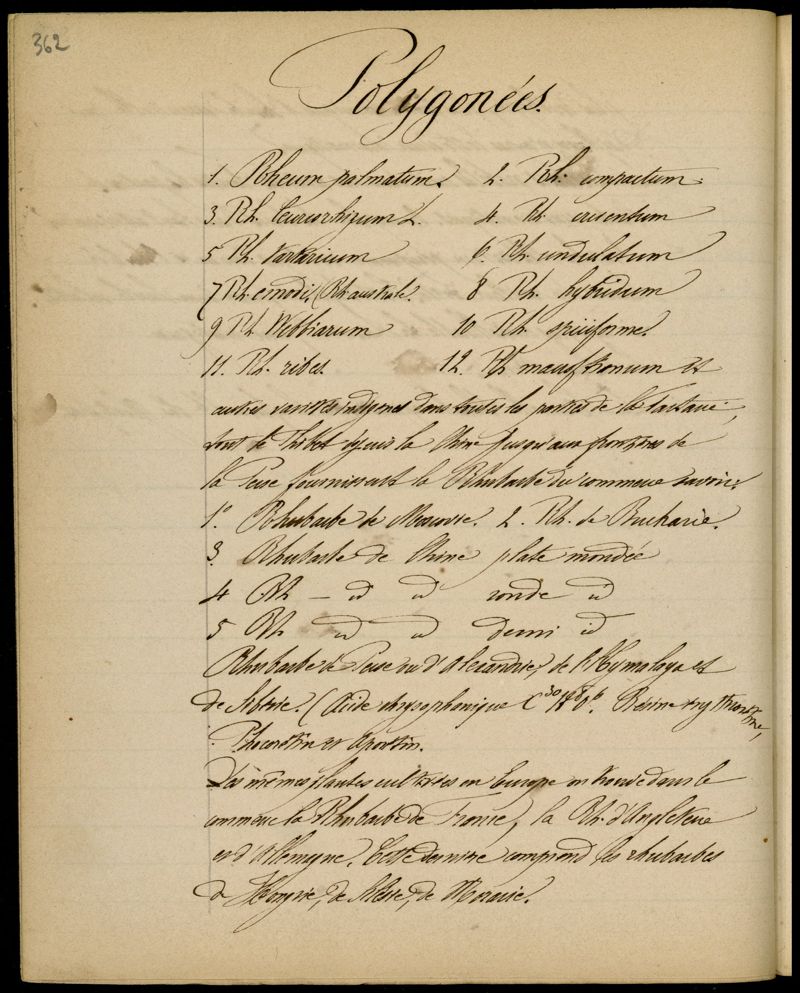 362
Polygonées.
1. Rheum palmatum. 2. Rh. compactum.
3. Rh. leucorhizum L. 4. Rh. 
5 Rh. tartaricum 6. Rh. undulatum
7 Rh. emodi, (Rh. australe. 8 Rh. hybridum
9 Rh. Webbianum 10 Rh. spiciforme.
11. Rh. ribes. 12. Rh et
autres variétés indigènes dans toutes les parties de la Tartarie,
tout le Thibet depuis la Chine jusqu'aux frontières de
la Perse fournissent la Rhubarbe du commerce savoir:
1° Rhubarbe de Moscovie. 2. Rh. de Bucharie.
3. Rhubarbe de Chine plate mondée
4 Rh — id id ronde id
5 Rh id id demi id
Rhubarbe de Perse ou d'Alexandrie, de l'Hymalaya et
de Sibérie. (Acide chrysophanique Résine erythrorétine,
Phaorétin et Aporétin.
Les mêmes plantes cultivées en Europe on trouve dans le
commerce la Rhubarbe de France, la Rh. d'Angleterre
et d'Allemagne. Cette dernière comprend les rhubarbes
de Hongrie, de Silésie, de Moravie.